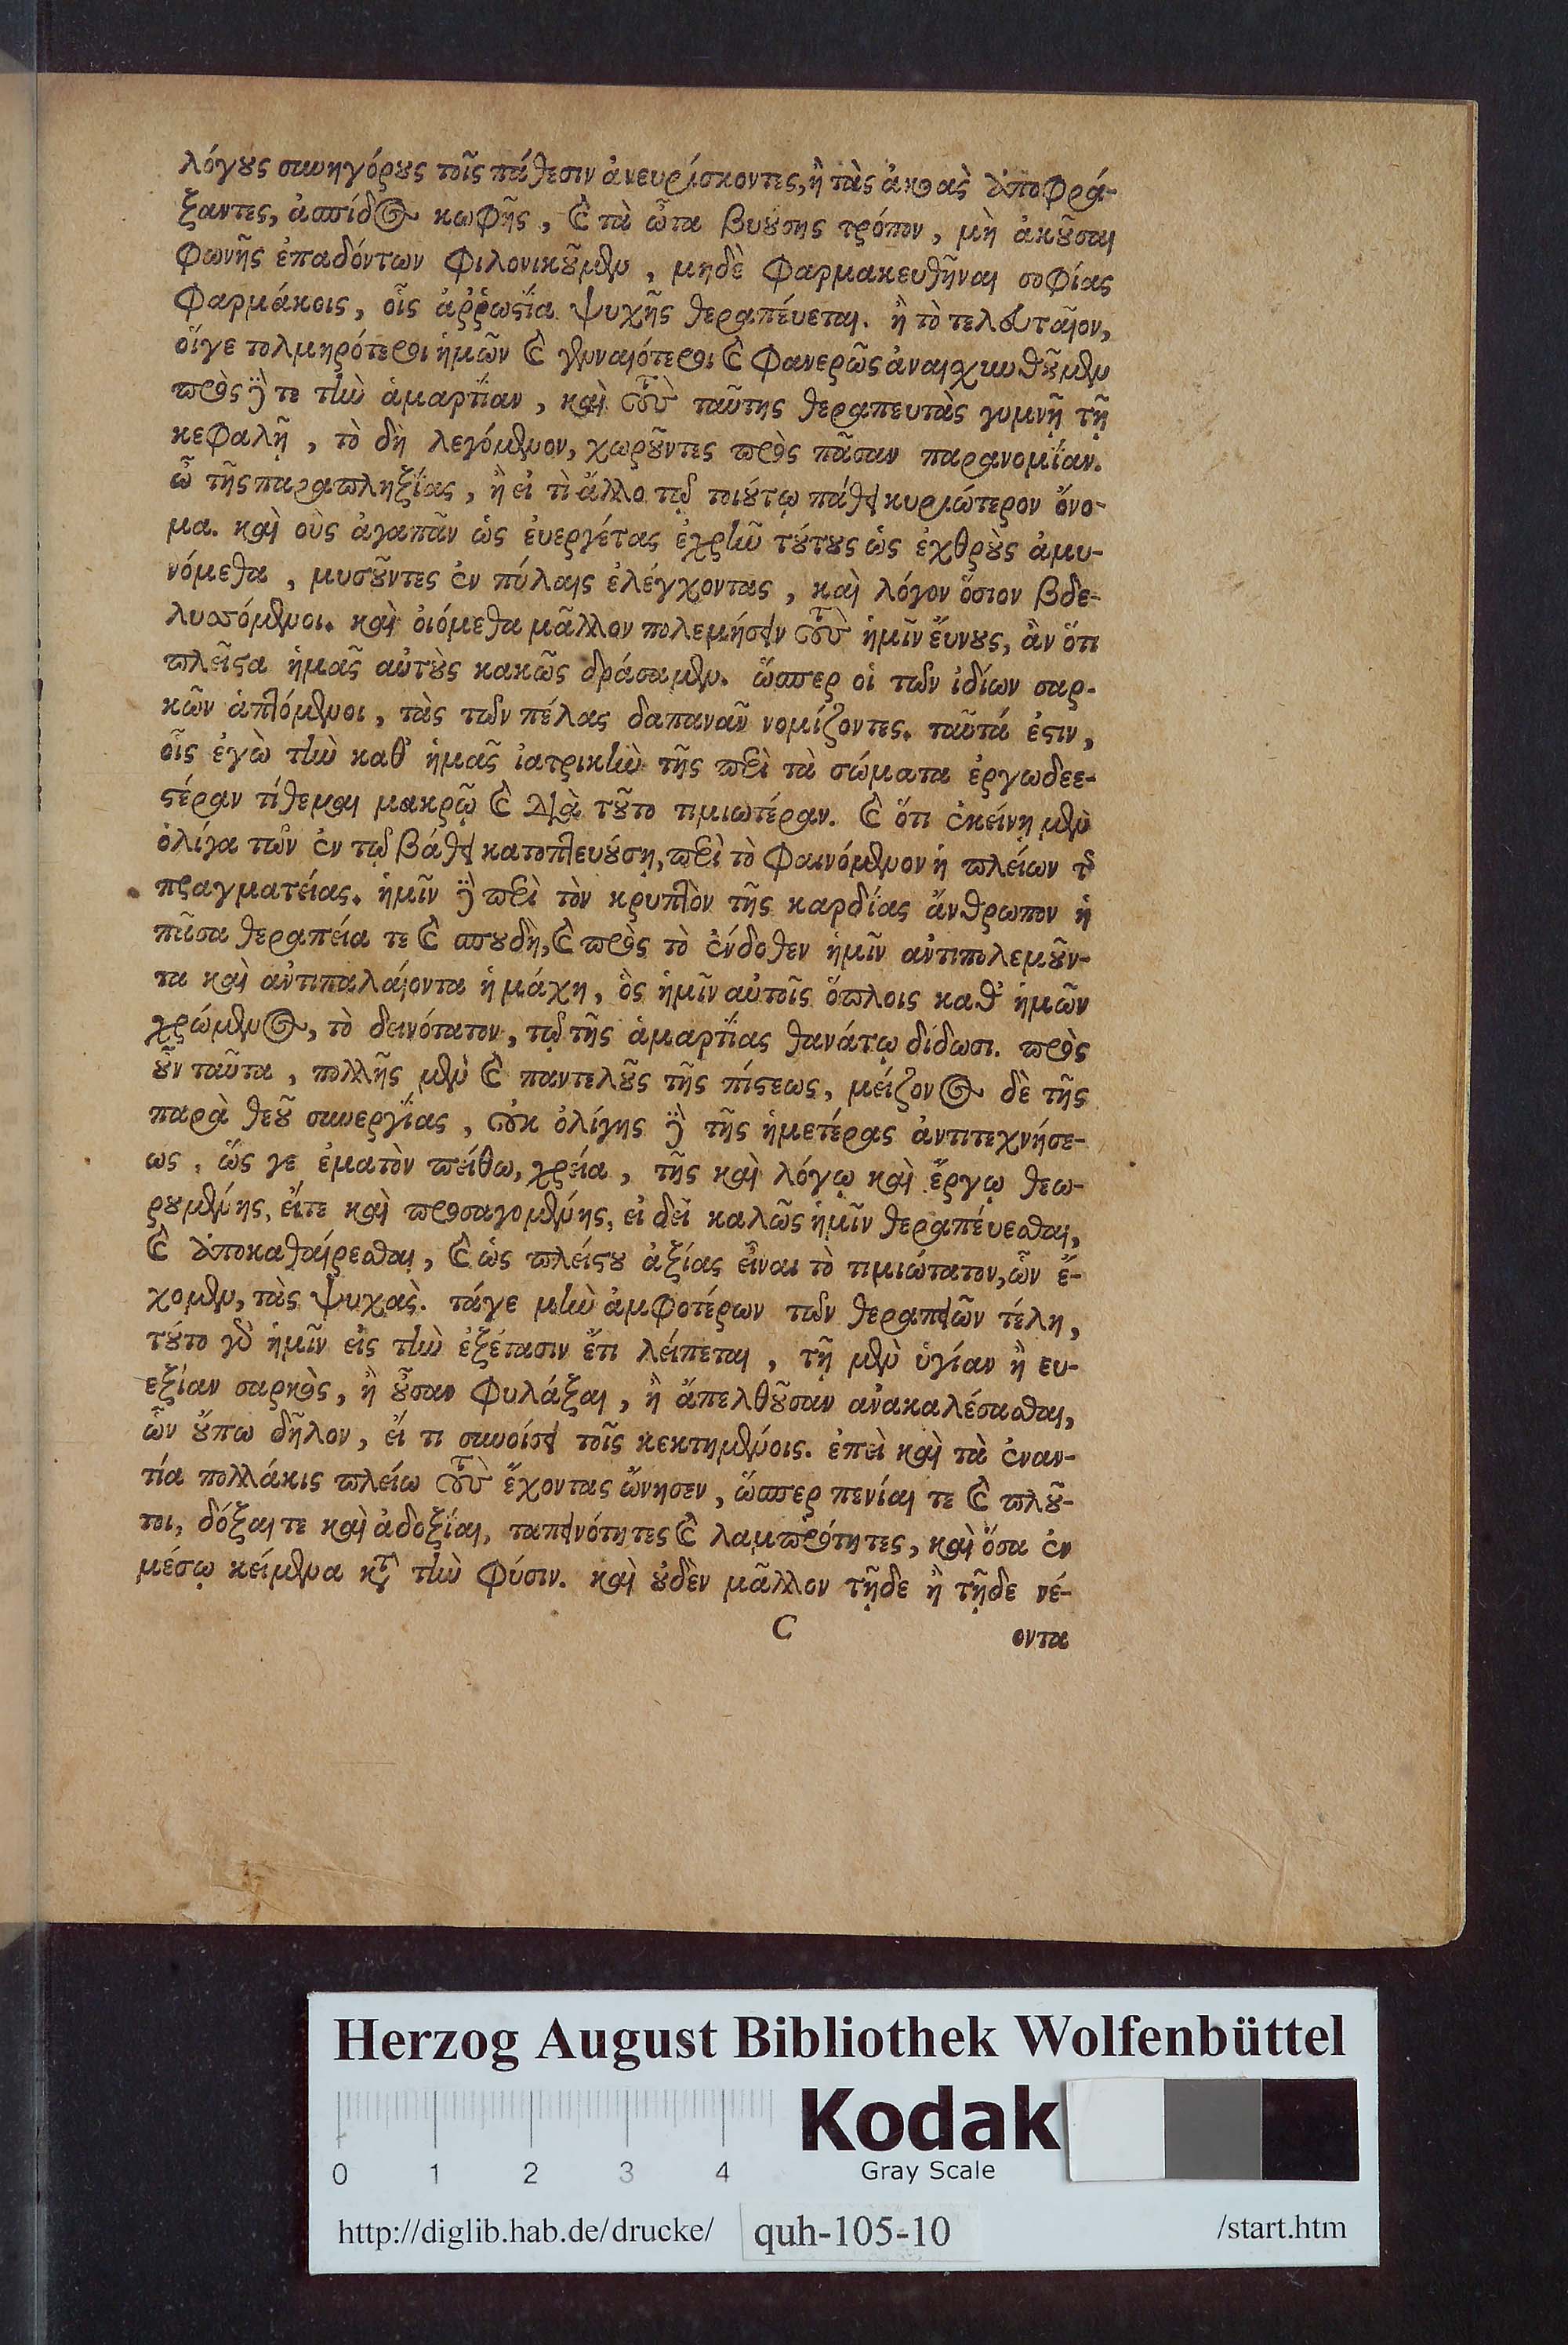 λόγους συνηγόρους τοῖς πάθεσιν ἀνευρίσκοντες, ἢ τὰς ἀκοὰς ἀποφρά-
ξαντες, ἀσπίδος κωφῆς, καὶ τὰ ὦτα βυούσης τρόπον, μὴ ἀκοῦσαι
φωνῆς ἐπαδόντων φιλονικοῦμεν, μηδὲ φαρμακευθῆναι σοφίας
φαρμάκοις, οἷς ἀῤῥωστία ψυχῆς θεραπέυεται. ἢ τὸ τελευταῖον,
οἵγε τολμηρότεροι ἡμῶν καὶ γενναιότεροι καὶ φανερῶς ἀναισχυνθοῦμεν
πρὸς δέ τε τὴν ἁμαρτίαν, καὶ τοὺς ταύτης θεραπευτὰς γυμνῇ τῇ
κεφαλῇ, τὸ δὴ λεγόμενον, χωροῦντες πρὸς πᾶσαν παρανομίαν.
ὦ τῆς παραπληξίας, ἢ εἰ τὶ ἄλλο τῷ τοιούτῳ πάθει κυριώτερον ὄνο-
μα. καὶ οὓς ἀγαπᾶν ὡς ἐυεργέτας ἐχρῆν τούτους ὡς ἐχθροὺς ἀμυ-
νόμεθα, μυσοῦντες ἐν πύλαις ἐλέγχοντας, καὶ λόγον ὅσιον βδε-
λυσσόμενοι. καὶ οἰόμεθα μᾶλλον πολεμήσειν τοὺς ἡμῖν ἔυνους, ἂν ὅτι
πλεῖστα ἡμᾶς αὐτοὺς κακῶς δράσαμεν. ὥσπερ οἱ τῶν ἰδίων σαρ-
κῶν ἁπτόμενοι, τὰς τῶν πέλας δαπανᾶν νομίζοντες. ταῦτά ἐστιν,
οἷς ἐγὼ τὴν καθ' ἡμᾶς ἰατρικὴν τῆς περὶ τὰ σώματα ἐργωδεε-
στέραν τίθεμαι μακρῷ καὶ διὰ τοῦτο τιμιωτέραν. καὶ ὅτι ἐκείνῃ μὲν
ὀλίγα τῶν ἐν τῷ βάθει κατοπτευούσῃ, περὶ τὸ φαινόμενον ἡ πλείων τῆς
πραγματείας. ἡμῖν δὲ περὶ τὸν κρυπτὸν τῆς καρδίας ἄνθρωπον ἡ
πᾶσα θεραπεία τε καὶ σπουδὴ, καὶ πρὸς τὸ ἔνδοθεν ἡμῖν ἀντιπολεμοῦν-
τα καὶ ἀντιπαλαίοντα ἡ μάχη, ὃς ἡμῖν αὐτοῖς ὅπλοις καθ' ἡμῶν
χρώμενος, τὸ δεινότατον, τῷ τῆς ἁμαρτίας θανάτῳ δίδωσι. πρὸς
οὖν ταῦτα, πολλῆς μὲν καὶ παντελοῦς τῆς πίστεως, μείζονος δὲ τῆς
παρὰ θεοῦ συνεργίας, οὐκ ὀλίγης δὲ τῆς ἡμετέρας ἀντιτεχνήσε-
ως, ὥς γε ἐματὸν πείθω, χρεία, τῆς καὶ λόγῳ καὶ ἔργῳ θεω-
ρουμένης, ἔιτε καὶ προσαγομένης, εἰ δεῖ καλῶς ἡμῖν θεραπέυεσθαι,
καὶ ἀποκαθαίρεσθαι, καὶ ὡς πλείστου ἀξίας εἶναι τὸ τιμιώτατον, ὧν ἔ-
χομεν, τὰς ψυχάς. τάγε μὴν ἀμφοτέρων τῶν θεραπειῶν τέλη,
τούτο γὰρ ἡμῖν εἰς τὴν ἐξέτασιν ἔτι λείπεται, τῇ μὲν ὑγίαν ἢ ευ-
εξίαν σαρκὸς, ἢ οὖσαν φυλάξαι, ἢ ἄπελθοῦσαν ἀνακαλέσασθαι,
ὧν οὔπω δῆλον, ἔι τι συνοίσει τοῖς κεκτημένοις. ἐπεὶ καὶ τὰ ἐναν-
τία πολλάκις πλείω τοὺς ἔχοντας ὤνησεν, ὥσπερ πενίαι τε καὶ πλοῦ-
τοι, δόξαι τε καὶ ἀδοξίαι, ταπεινότητες καὶ λαμπρότητες, καὶ ὅσα ἐν
μέσῳ κείμενα κατὰ τὴν φύσιν. καὶ οὐδὲν μᾶλλον τῇδε ἢ τῇδε νέ-
C οντα
Herzog August Bibliothek Wolfenbüttel
Kodak
0 1 2 3 4 Gray Scale
http://diglib.hab.de/drucke/ quh-105-10 /start.htm